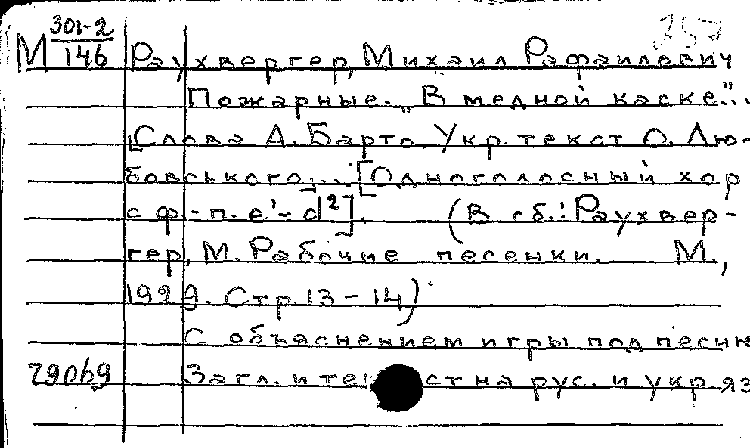 М 301-2/146 Раухвергер, Михаил Рафаилович
Пожарные. „В медной каске"...
[Слова А. Барто. Укр. текст О. Лю-
бовського... [Одноголосный хор
с ф.-п. e'-d²]. (В сб.: Раухвер-
гер, М. Рабочие песенки. М.,
1929. Стр. 13-14)
С объяснением игры под песню
79069 Загл. и текст на рус. и укр. яз